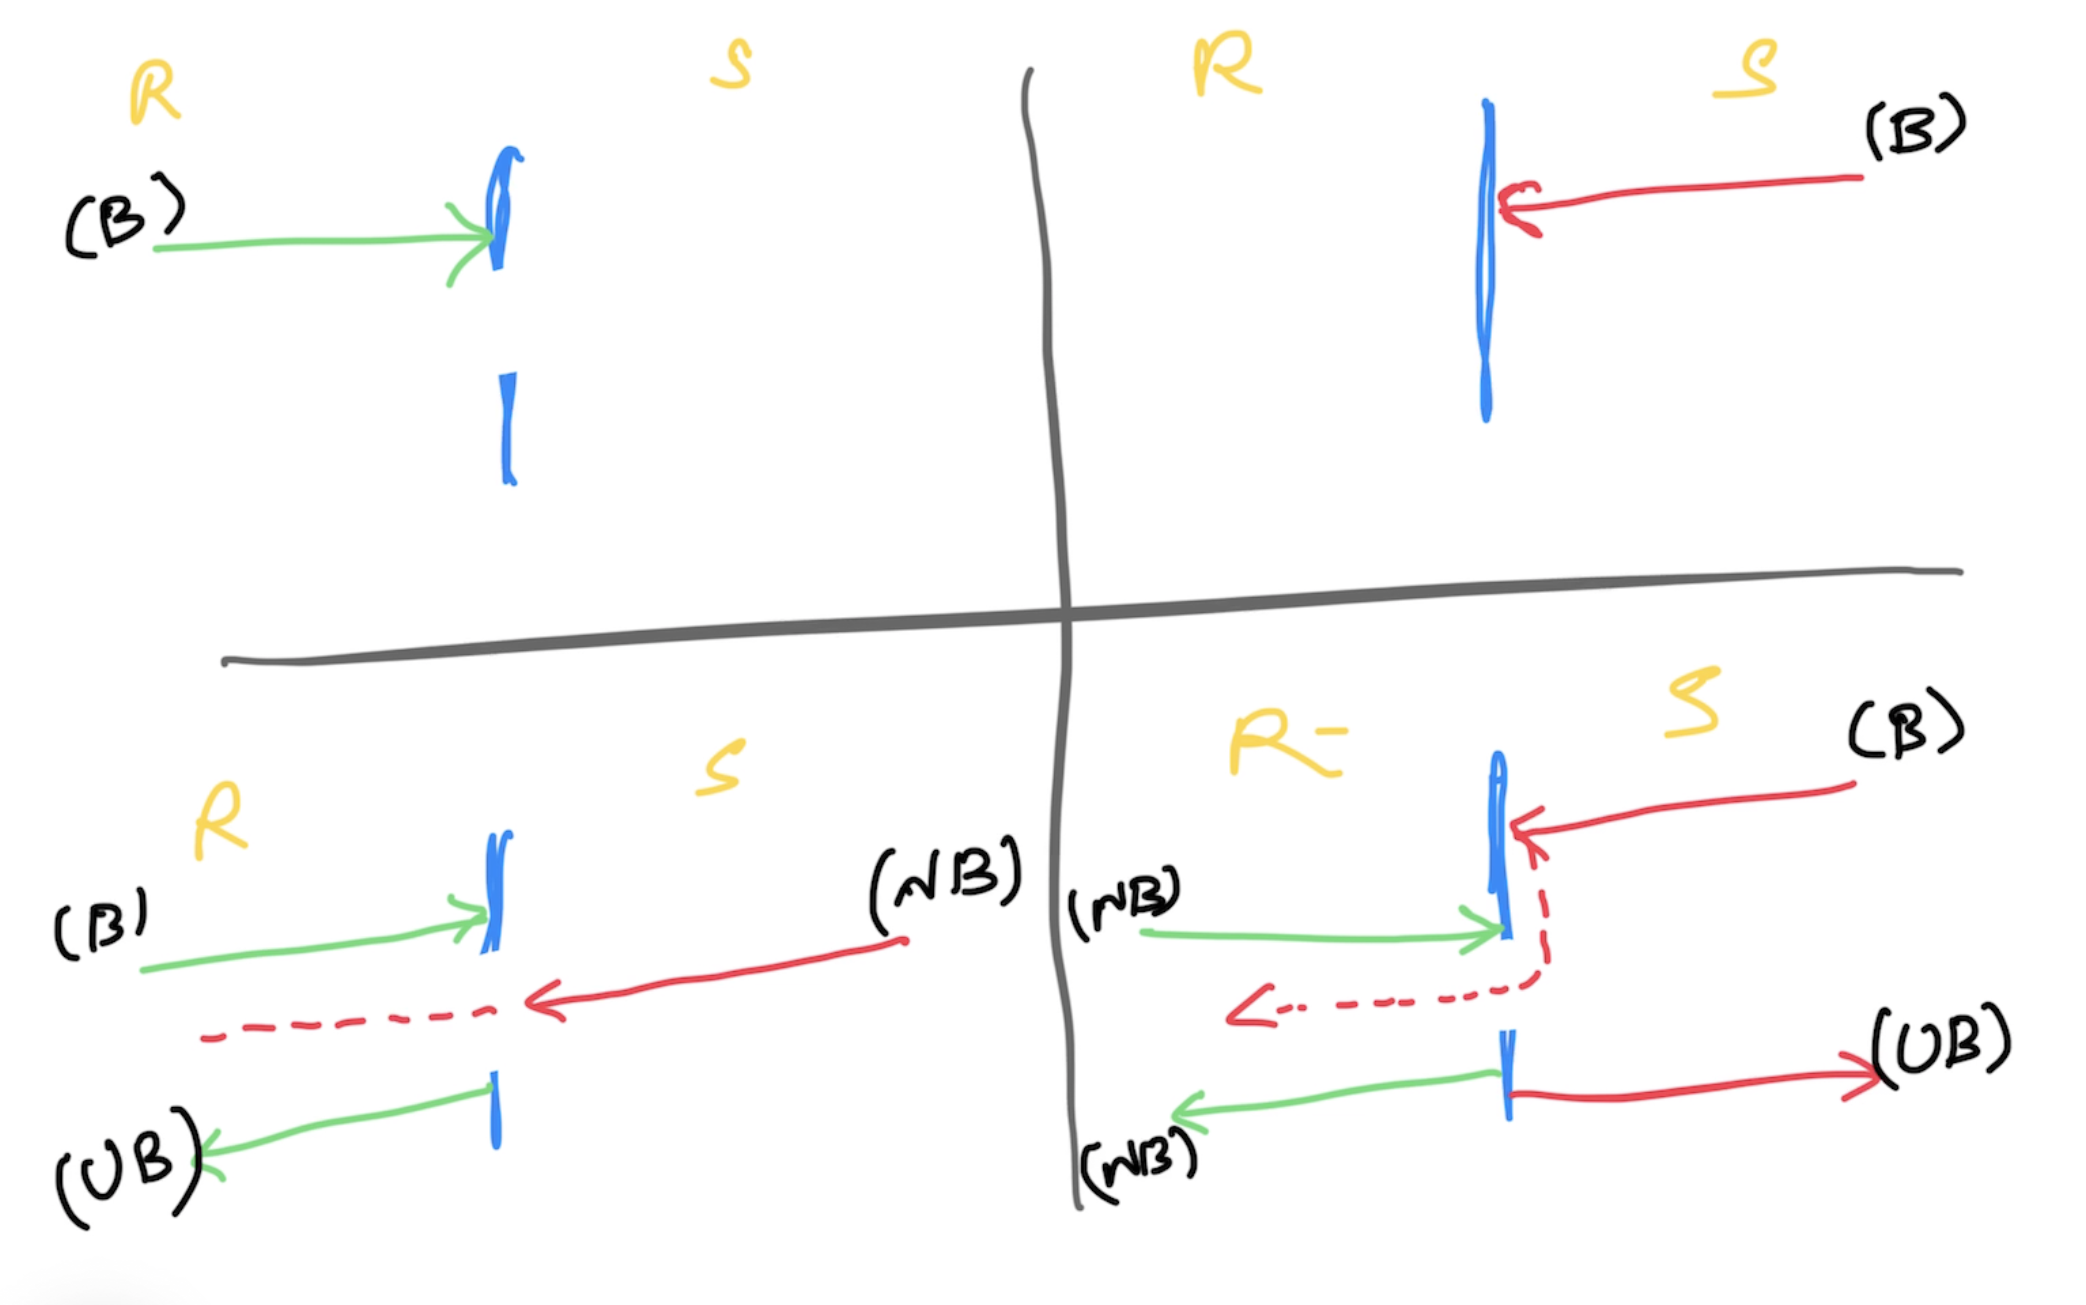 R S
(B)
R S
(B)
R S
(B) (NB)
(UB)
R- S
(B)
(NB)
(UB)
(NB)